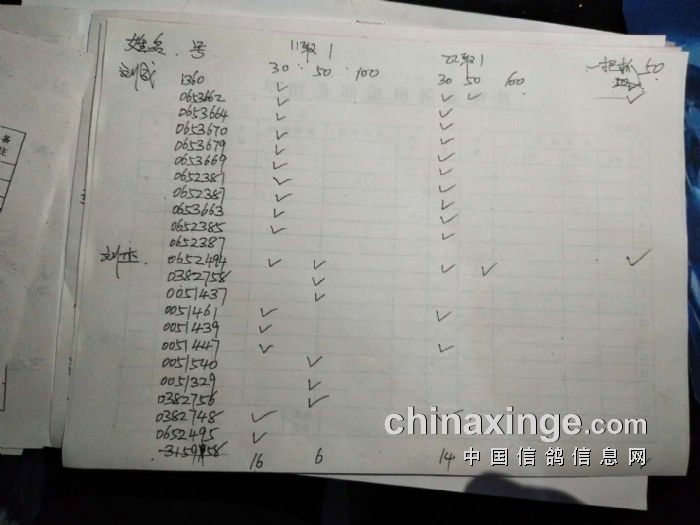 姓名 号 11取1 22取1
30 50 100 30 50 100 一把抓 50
刘成 1360 ✓
0653662 ✓ ✓ ✓ ✓
0653664 ✓ ✓
0653670 ✓ ✓
0653679 ✓ ✓
0653669 ✓ ✓
0652381 ✓ ✓
0652387 ✓ ✓
0653663 ✓ ✓
0652385 ✓ ✓
0652387
刘 0652494 ✓ ✓ ✓ ✓ ✓
0382758 ✓
0051437 ✓
0051461 ✓ ✓
0051439 ✓
0051447 ✓ ✓
0051540 ✓
0051329 ✓
0382756 ✓
0382748 ✓ ✓
0652495 ✓
16 6 14
备注
chinaxinge.com
中国信鸽信息网